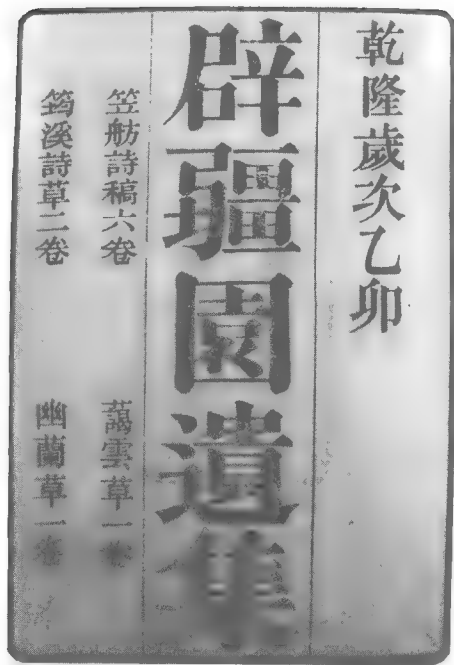 乾隆歲次乙卯
辟疆園遺集
笠舫詩稿六卷
藹雲草一卷
筠溪詩草二卷
幽蘭草一卷